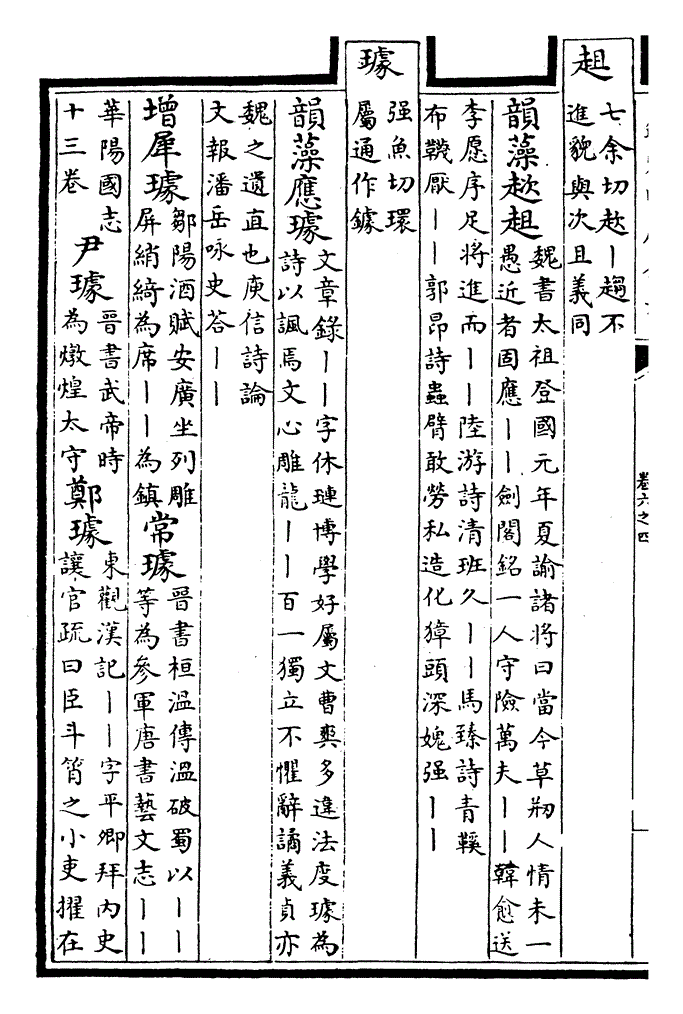 卷六之四
趄
七余切趑丨趨不
進貌與次且義同
韻藻趑趄
魏書太祖登國元年夏諭諸將曰當今草刱人情未一
愚近者固應丨丨劍閣銘一人守險萬夫丨丨韓愈送
李愿序足將進而丨丨陸游詩清班久丨丨馬臻詩青鞵
布韈厭丨丨郭昂詩蟲臂敢勞私造化獐頭深媿强丨丨
璩
强魚切環
屬通作鐻
韻藻應璩
文章錄丨丨字休璉博學好屬文曹爽多違法度璩為
詩以諷焉文心雕龍丨丨百一獨立不懼辭譎義貞亦
魏之遺直也庾信詩論
文報潘岳咏史荅丨丨
增犀璩
鄒陽酒賦安廣坐列雕
屏綃綺為席丨丨為鎮
常璩
晉書桓溫傳溫破蜀以丨丨
等為參軍唐書藝文志丨丨
華陽國志
十三卷
尹璩
晉書武帝時
為燉煌太守
鄭璩
東觀漢記丨丨字平卿拜内史
讓官疏曰臣斗筲之小吏擢在